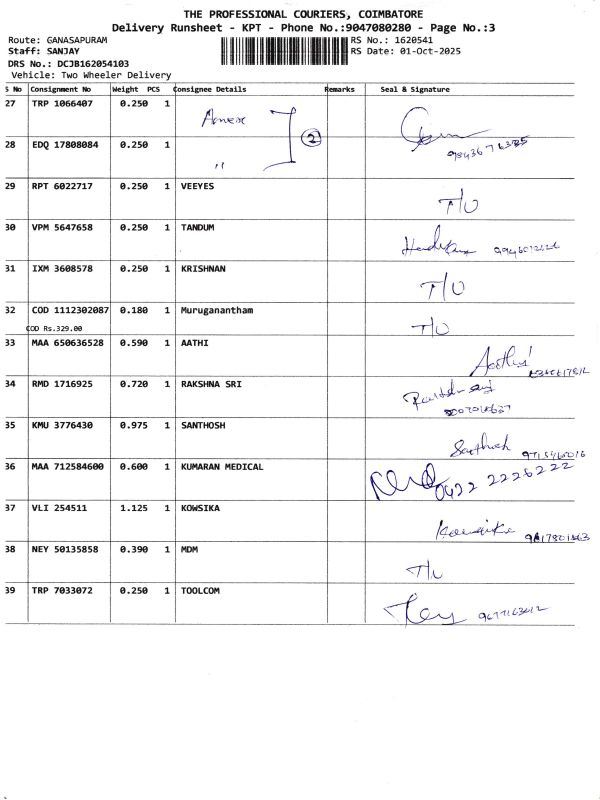 THE PROFESSIONAL COURIERS, COIMBATORE
Delivery Runsheet - KPT - Phone No.:9047080280 - Page No.:3
Route: GANASAPURAM RS No.: 1620541
Staff: SANJAY RS Date: 01-Oct-2025
DRS No.: DCJB162054103
Vehicle: Two Wheeler Delivery
S No Consignment No Weight PCS Consignee Details Remarks Seal & Signature
27 TRP 1066407 0.250 1
2
28 EDQ 17808084 0.250 1 ,,
29 RPT 6022717 0.250 1 VEEYES T/U
30 VPM 5647658 0.250 1 TANDUM
31 IXM 3608578 0.250 1 KRISHNAN T/U
32 COD 1112302087 0.180 1 Muruganantham T/U
COD Rs.329.00
33 MAA 650636528 0.590 1 AATHI Aathi
34 RMD 1716925 0.720 1 RAKSHNA SRI
35 KMU 3776430 0.975 1 SANTHOSH Santhosh
36 MAA 712584600 0.600 1 KUMARAN MEDICAL 0422 2226222
37 VLI 254511 1.125 1 KOWSIKA Kowsika
38 NEY 50135858 0.390 1 MDM T/U
39 TRP 7033072 0.250 1 TOOLCOM